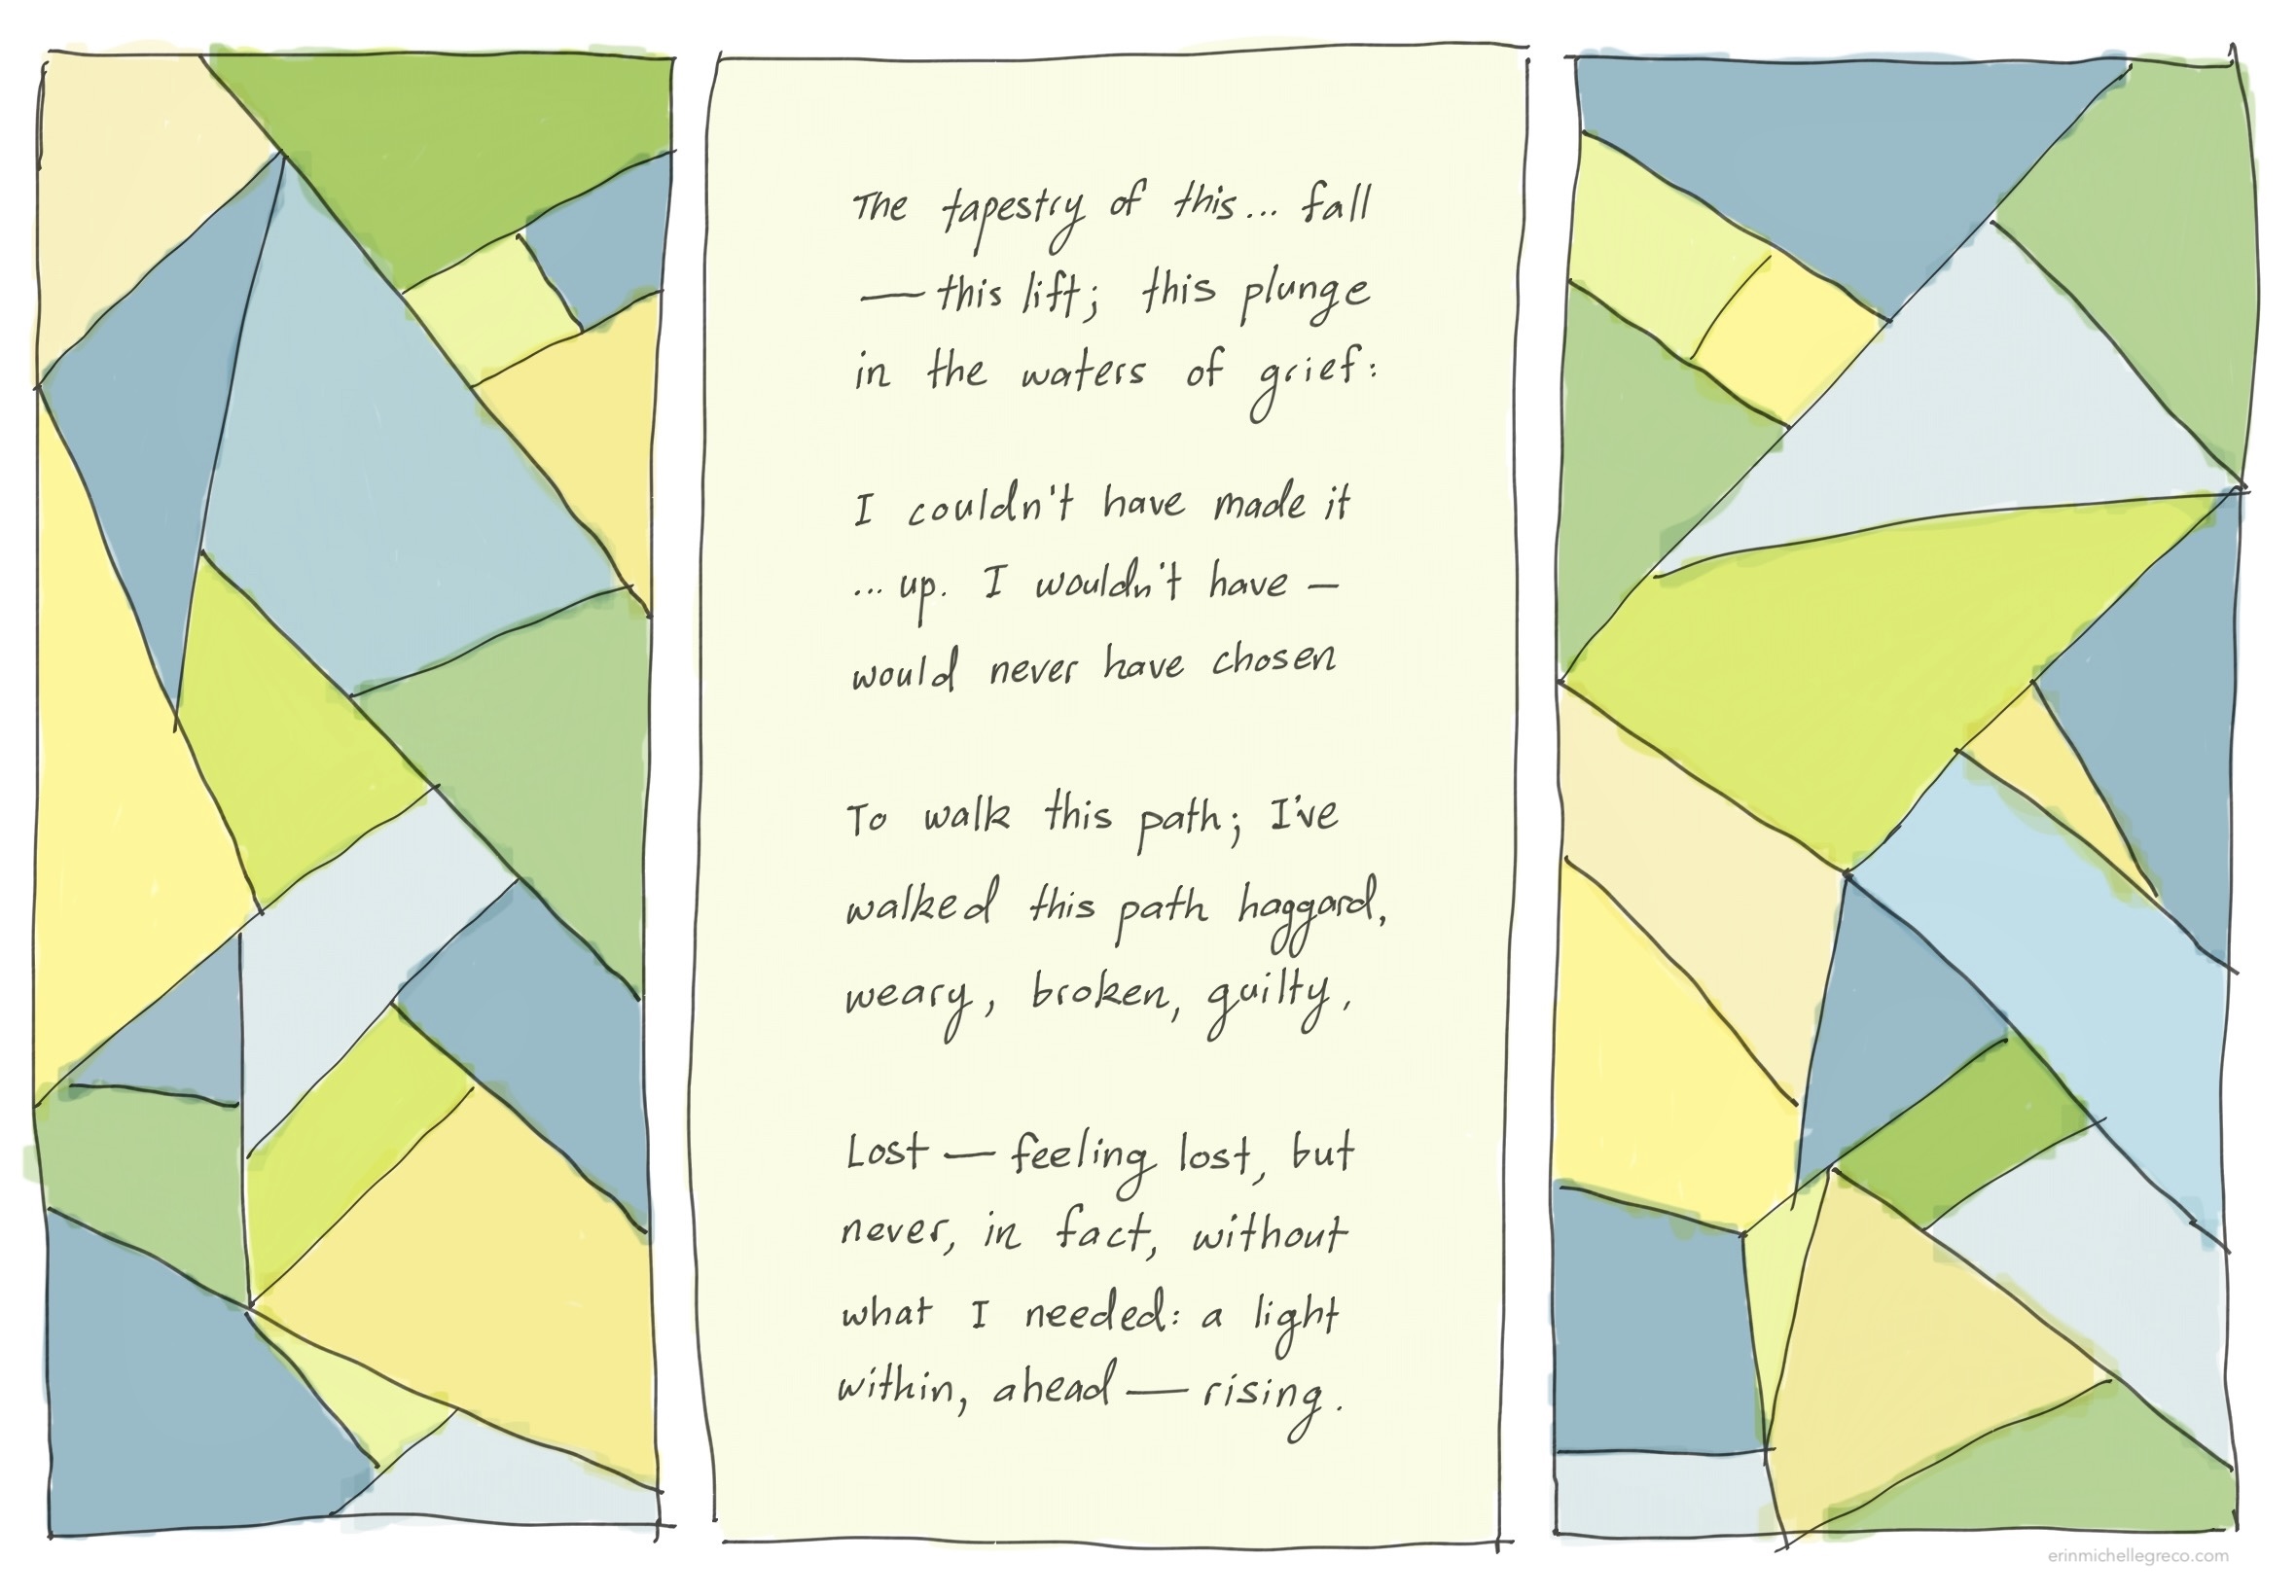 The tapestry of this... fall
— this lift; this plunge
in the waters of grief:
I couldn't have made it
... up. I wouldn't have —
would never have chosen
To walk this path; I've
walked this path haggard,
weary, broken, guilty,
Lost — feeling lost, but
never, in fact, without
what I needed: a light
within, ahead — rising.
erinmichellegreco.com